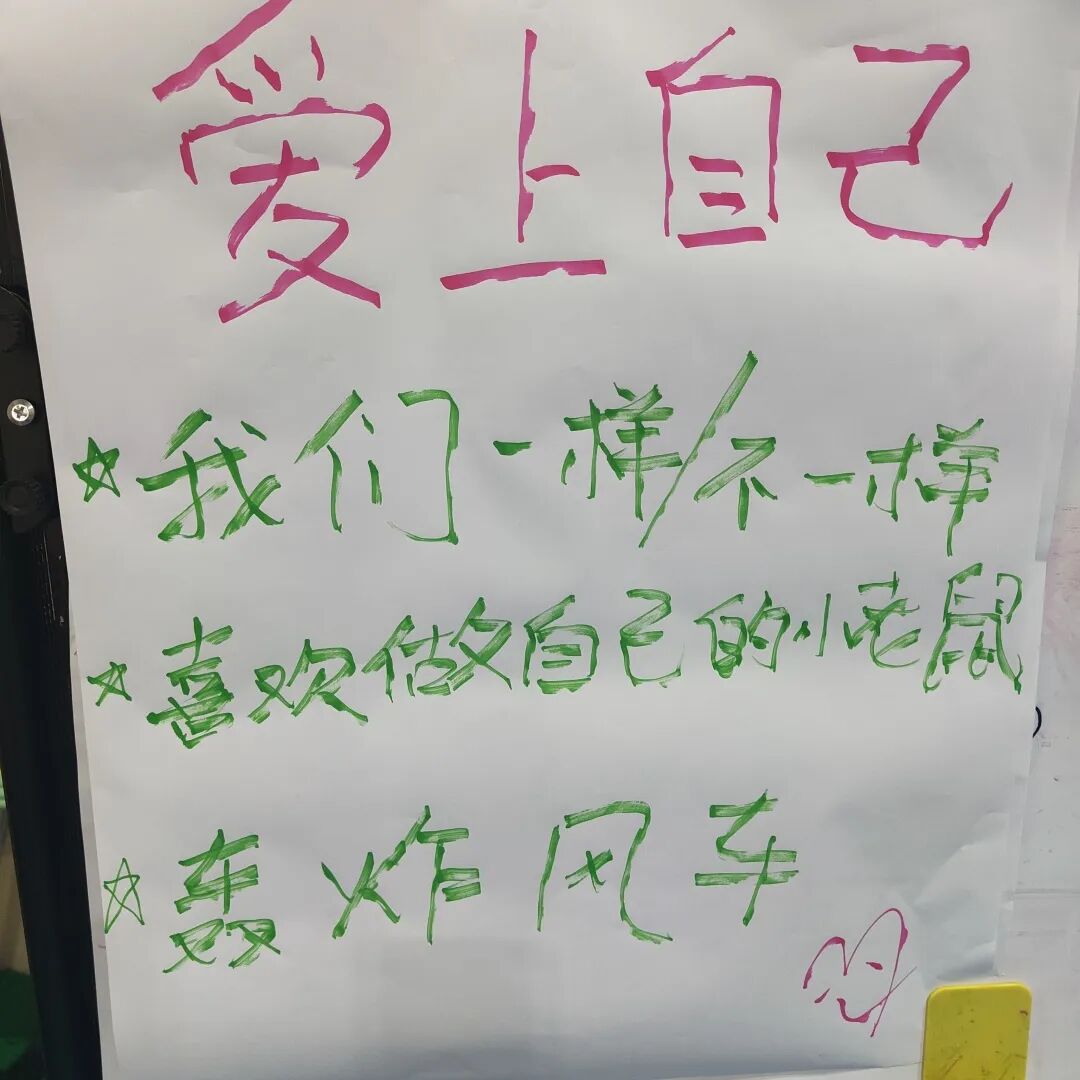 爱上自己
☆我们一样/不一样
☆喜欢做自己的小老鼠
☆轰炸风车